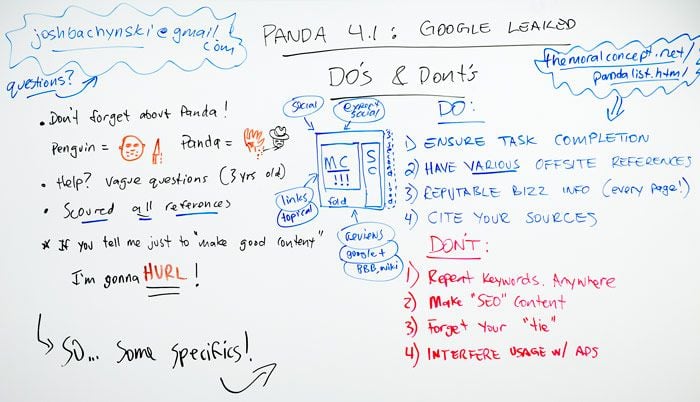 joshbachynski@gmail
com
questions?
PANDA 4.1: GOOGLE LEAKED
DO's & Dont's
themoralconcept.net/
pandalist.html
• Don't forget about Panda!
Penguin = Panda =
• Help? Vague questions (3 yrs old)
• Scoured all references
* If you tell me just to "make good content"
I'm gonna HURL!
SO... Some Specifics!
social
expert
social
MC
!!!
SC
fold
links
topical
reviews
google+
BBB, wiki
DO:
1) ENSURE TASK COMPLETION
2) HAVE VARIOUS OFFSITE REFERENCES
3) REPUTABLE BIZZ INFO (every page!)
4) CITE YOUR SOURCES
DON'T:
1) Repeat Keywords. Anywhere
2) Make "SEO" Content
3) Forget Your "tie"
4) INTERFERE USAGE W/ ADS